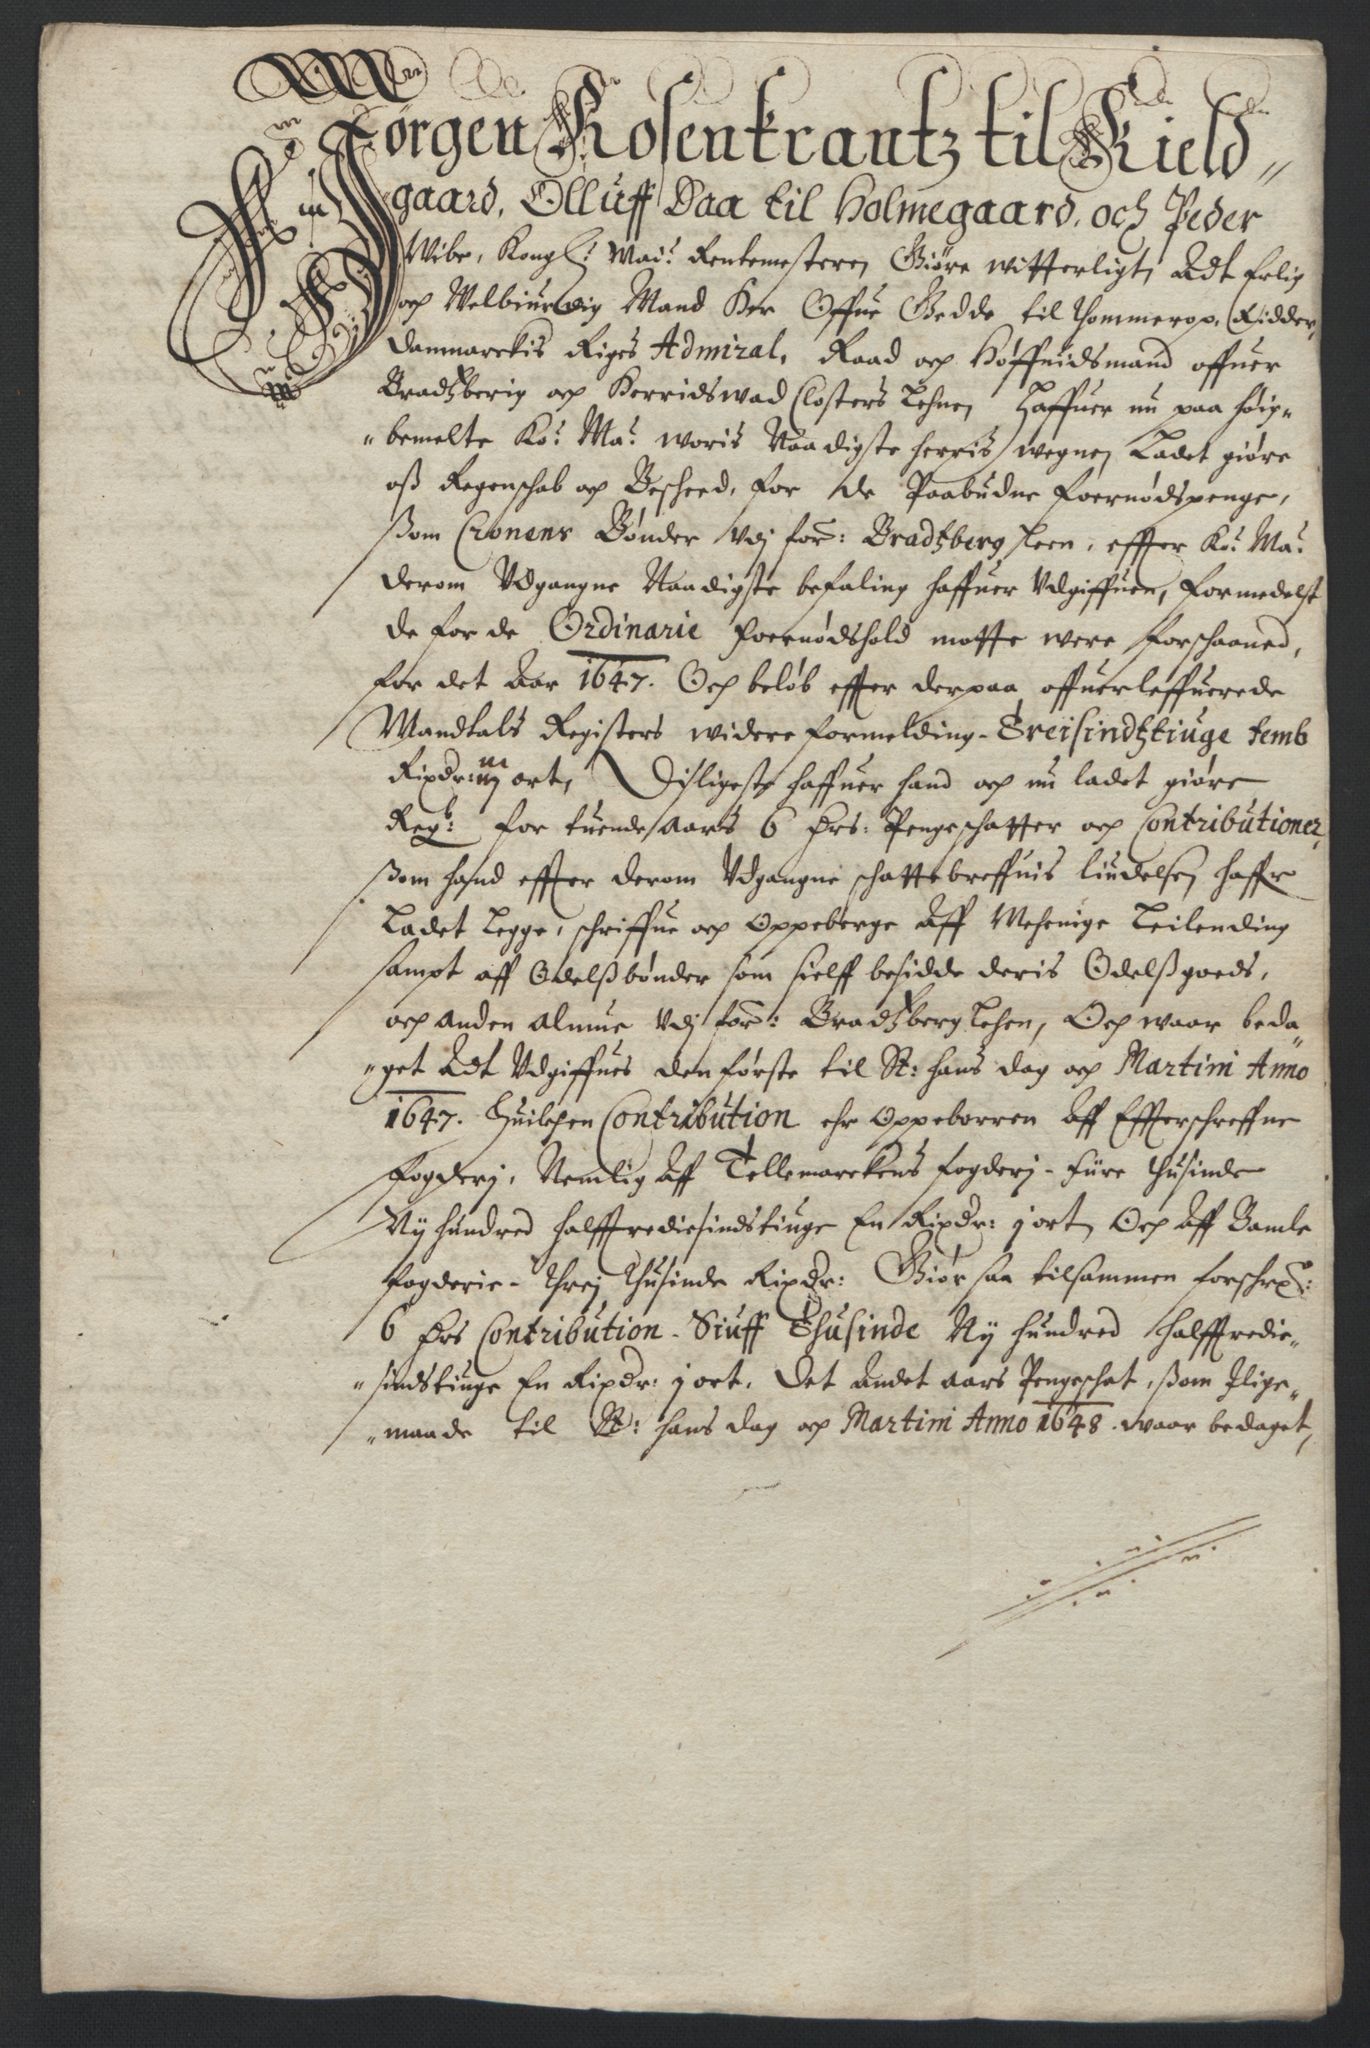 Jørgen Rosenkrantz til Kield„
gaard, Olluff Daa til Holmegaard, och Peder
Wibe, Kongl: Mai: Rentemestere, Giøre witterligt, Adt Erlig
och Welbiurdig Mand Her Offue Gedde til Thommerop, Ridder,
Danmarckis Riges Admiral, Raad och Høffuidsmand offuer
Bradtzberig och Herridswad Closters Lehne, Haffuer nu paa høig„
„bemelte Ko: Ma: woris Naadigste herris wegne, Ladet giøre
oß Regenschab och Bescheed, for de Paabudne Foernødspenge,
ßom Cronens Bønder udj for: Bradtzberg Leen, effter Ko: Ma:
derom Udgangne Naadigste befaling haffuer Udgiffuen, formedelst
de for de Ordinarie Foernødshold motte were forschaaned,
for det Aar 1647. Och beløb effter derpaa offuerleffuerede
Mandtals Registers widere formelding - Treisindtztiuge temb
Rixdr: iij ort, Disligeste haffuer hand och nu ladet giøre
Regb: for tuende Aars 6 Ørs: Pengeschatter och Contributioner,
ßom hand effter derom Udgangne schattebreffuis liudelse, haffr
Ladet Legge, schriffue och Oppeberge Aff Mehenige Leilending
sampt aff Odelßbønder som sielff besidde deris Odelßgoeds,
och anden Almue udj for: Bradtzberg Lehen, Och waar beda„
„get Adt Udgiffues den første til St: Hans dag och Martini Anno
1647. Huilchen Contribution ehr Oppeborren Aff Effterschreffne
fogderj, Nemlig Aff Tellemarckens fogderj - Füre thusinde
Nij hundred halfftrediesindstiuge En Rixdr: j ort, Och Aff Bamle
fogderie - Threj thusinde Rixdr: Giør saa tilsammen forschrefne:
6 Ørs Contribution - Siuff Thusinde Nij hundred halfftredie„
„sindstiuge En Rixdr: j ort. Det Andet Aars Pengeschat, ßom Jlige„
„maade til St: Hans dag och Martini Anno 1648. waar bedaget,